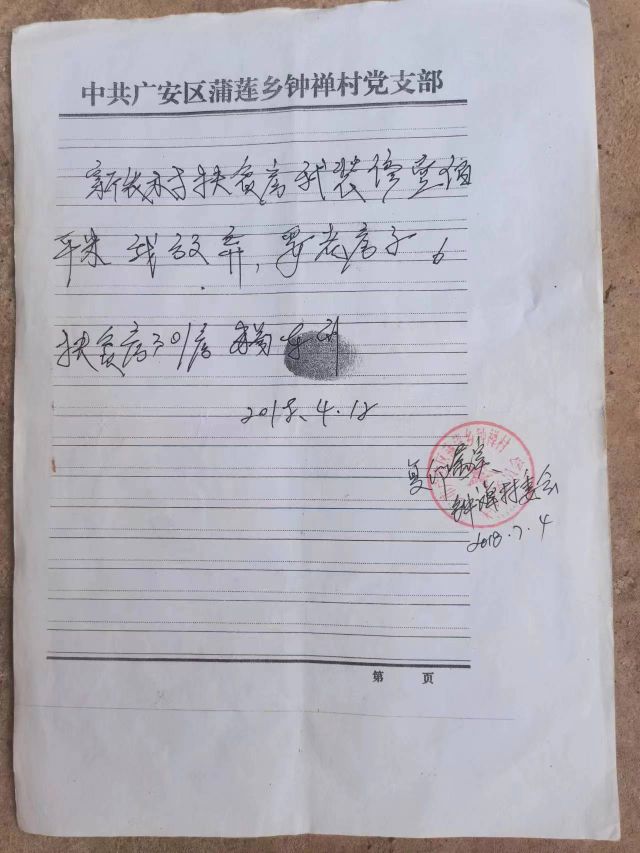 中共广安区蒲莲乡钟禅村党支部
新农村扶贫房我装修壹佰
平米 我放弃，要老房子。
扶贫房301房
2018.4.12
复印属实
钟禅村委会
2018.7.4
第 页